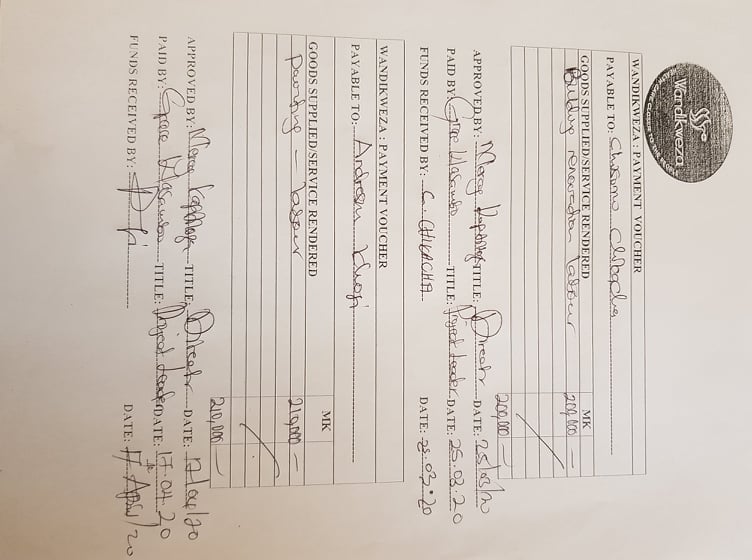 Wandikweza
WANDIKWEZA : PAYMENT VOUCHER
PAYABLE TO: Chisomo
GOODS SUPPLIED/SERVICE RENDERED MK
Building renovation labour 200,000 —
200,000 —
APPROVED BY: Mercy TITLE: Director DATE: 25/03/20
PAID BY: Grace Masambo TITLE: Project Leader DATE: 25.03.20
FUNDS RECEIVED BY: C. CHIKACHA DATE: 25.03.20
WANDIKWEZA : PAYMENT VOUCHER
PAYABLE TO: Andrew
GOODS SUPPLIED/SERVICE RENDERED MK
painting – labour 210,000 —
210,000 —
APPROVED BY: Mercy TITLE: Director DATE: 17/04/20
PAID BY: Grace Masambo TITLE: Project Leader DATE: 17.04.20
FUNDS RECEIVED BY: DATE: 17th April/20